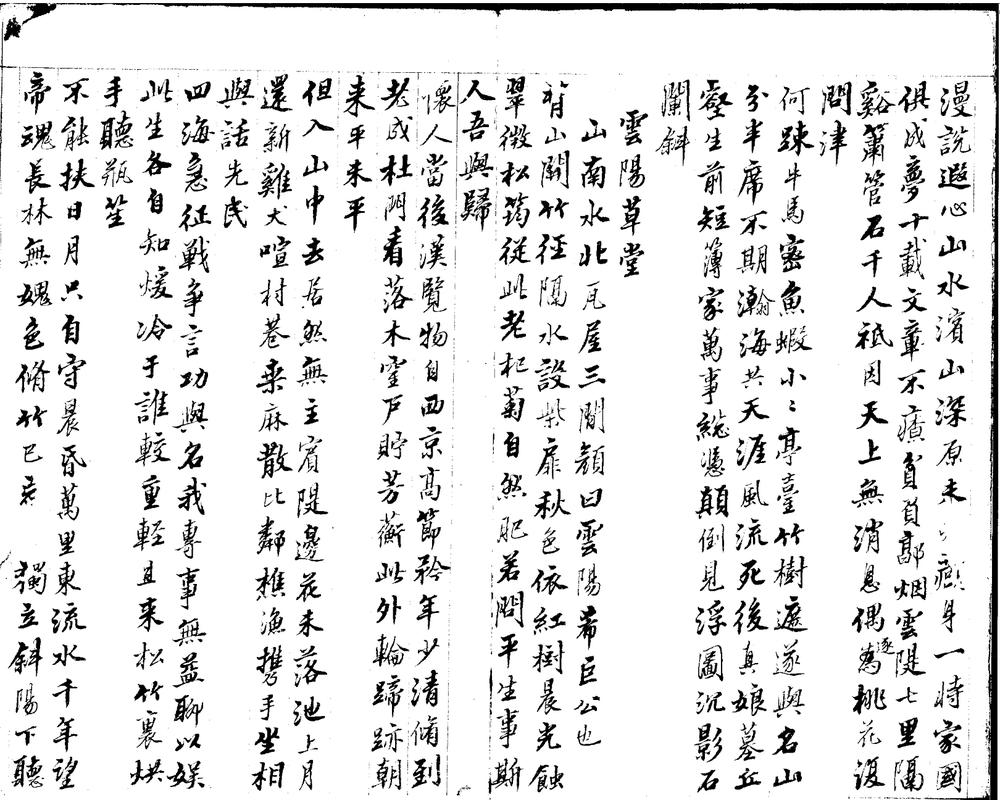 漫說遐心山水濱山深原未癩身一時家國
俱成夢十載文章不療貧負鄗烟雲隄七里隔
谿簫管石千人祗因天上無消息偶逐為桃花浸
問津
何疎牛馬密魚蝦小〻亭臺竹樹遮遂與名山
分半席不期瀚海共天涯風流死後真娘墓丘
壑生前短簿家萬事總憑顛倒見浮圖沉影石
闌斜
雲陽草堂
山南水北瓦屋三間額曰雲陽希巨公也
背山關竹徑隔水設柴扉秋色依紅樹晨光蝕
翠微松筠從此老杞菊自然肥若問平生事斯
人吾與歸
懷人當後漢覽物自西京高節矜年少清脩到
老成杜門看落木窒戶貯芳蘅此外輪蹄跡朝
來平未平
但入山中去居然無主賓隄邊花未落池上月
還新雞犬喧村巷桑麻散比鄰樵漁攜手坐相
與話先民
四海急征戰爭言功與名我專事無益聊以娱
此生各自知煖冷于誰較重輕且来松竹裏烘
手聽瓶笙
不能扶日月只自守晨昏萬里東流水千年望
帝魂長林無媿色脩竹已 獨立斜陽下聽